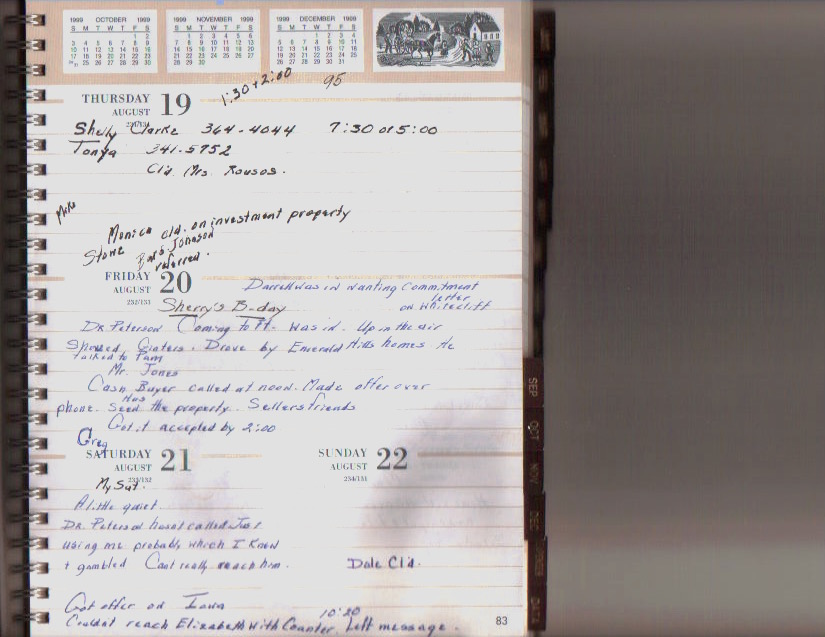 1999 OCTOBER 1999
S M T W T F S
1 2
3 4 5 6 7 8 9
10 11 12 13 14 15 16
17 18 19 20 21 22 23
25 26 27 28 29 30
1999 NOVEMBER 1999
S M T W T F S
1 2 3 4 5 6
7 8 9 10 11 12 13
14 15 16 17 18 19 20
21 22 23 24 25 26 27
28 29 30
1999 DECEMBER 1999
S M T W T F S
1 2 3 4
5 6 7 8 9 10 11
12 13 14 15 16 17 18
19 20 21 22 23 24 25
26 27 28 29 30 31
1:30 + 2:00 95
THURSDAY 19
AUGUST
231/134
Shelly Clarke 364-4044 7:30 or 5:00
Tonya 341-5752
Cld Mrs. Rousos.
Mike
Monica cld. on investment property
Stone Barb Jonason
referred.
FRIDAY 20
AUGUST
232/133
Darrell was in wanting Commitment
letter
on Whitecliff
Sherry's B-day
Dr Peterson Coming to Ft. Was in. Up in the air
Showed Giaters. Drove by Emerald Hills homes He
talked to Pam
Mr. Jones
Cash Buyer called at noon. Made offer over
Has
phone. Seen the property. Sellers friends
Got it accepted by 2:00
Greg
SATURDAY 21
AUGUST
233/132
My Sat.
A little quiet.
Dr. Peterson hasnt called Just
using me probably which I knew
+ gambled Cant really reach him.
Got offer on Iowa
10:20
Couldnt reach Elizabeth with Counter. Left message.
SUNDAY 22
AUGUST
234/131
Dale Cld.
83
SEP
OCT
NOV
DEC
DATA